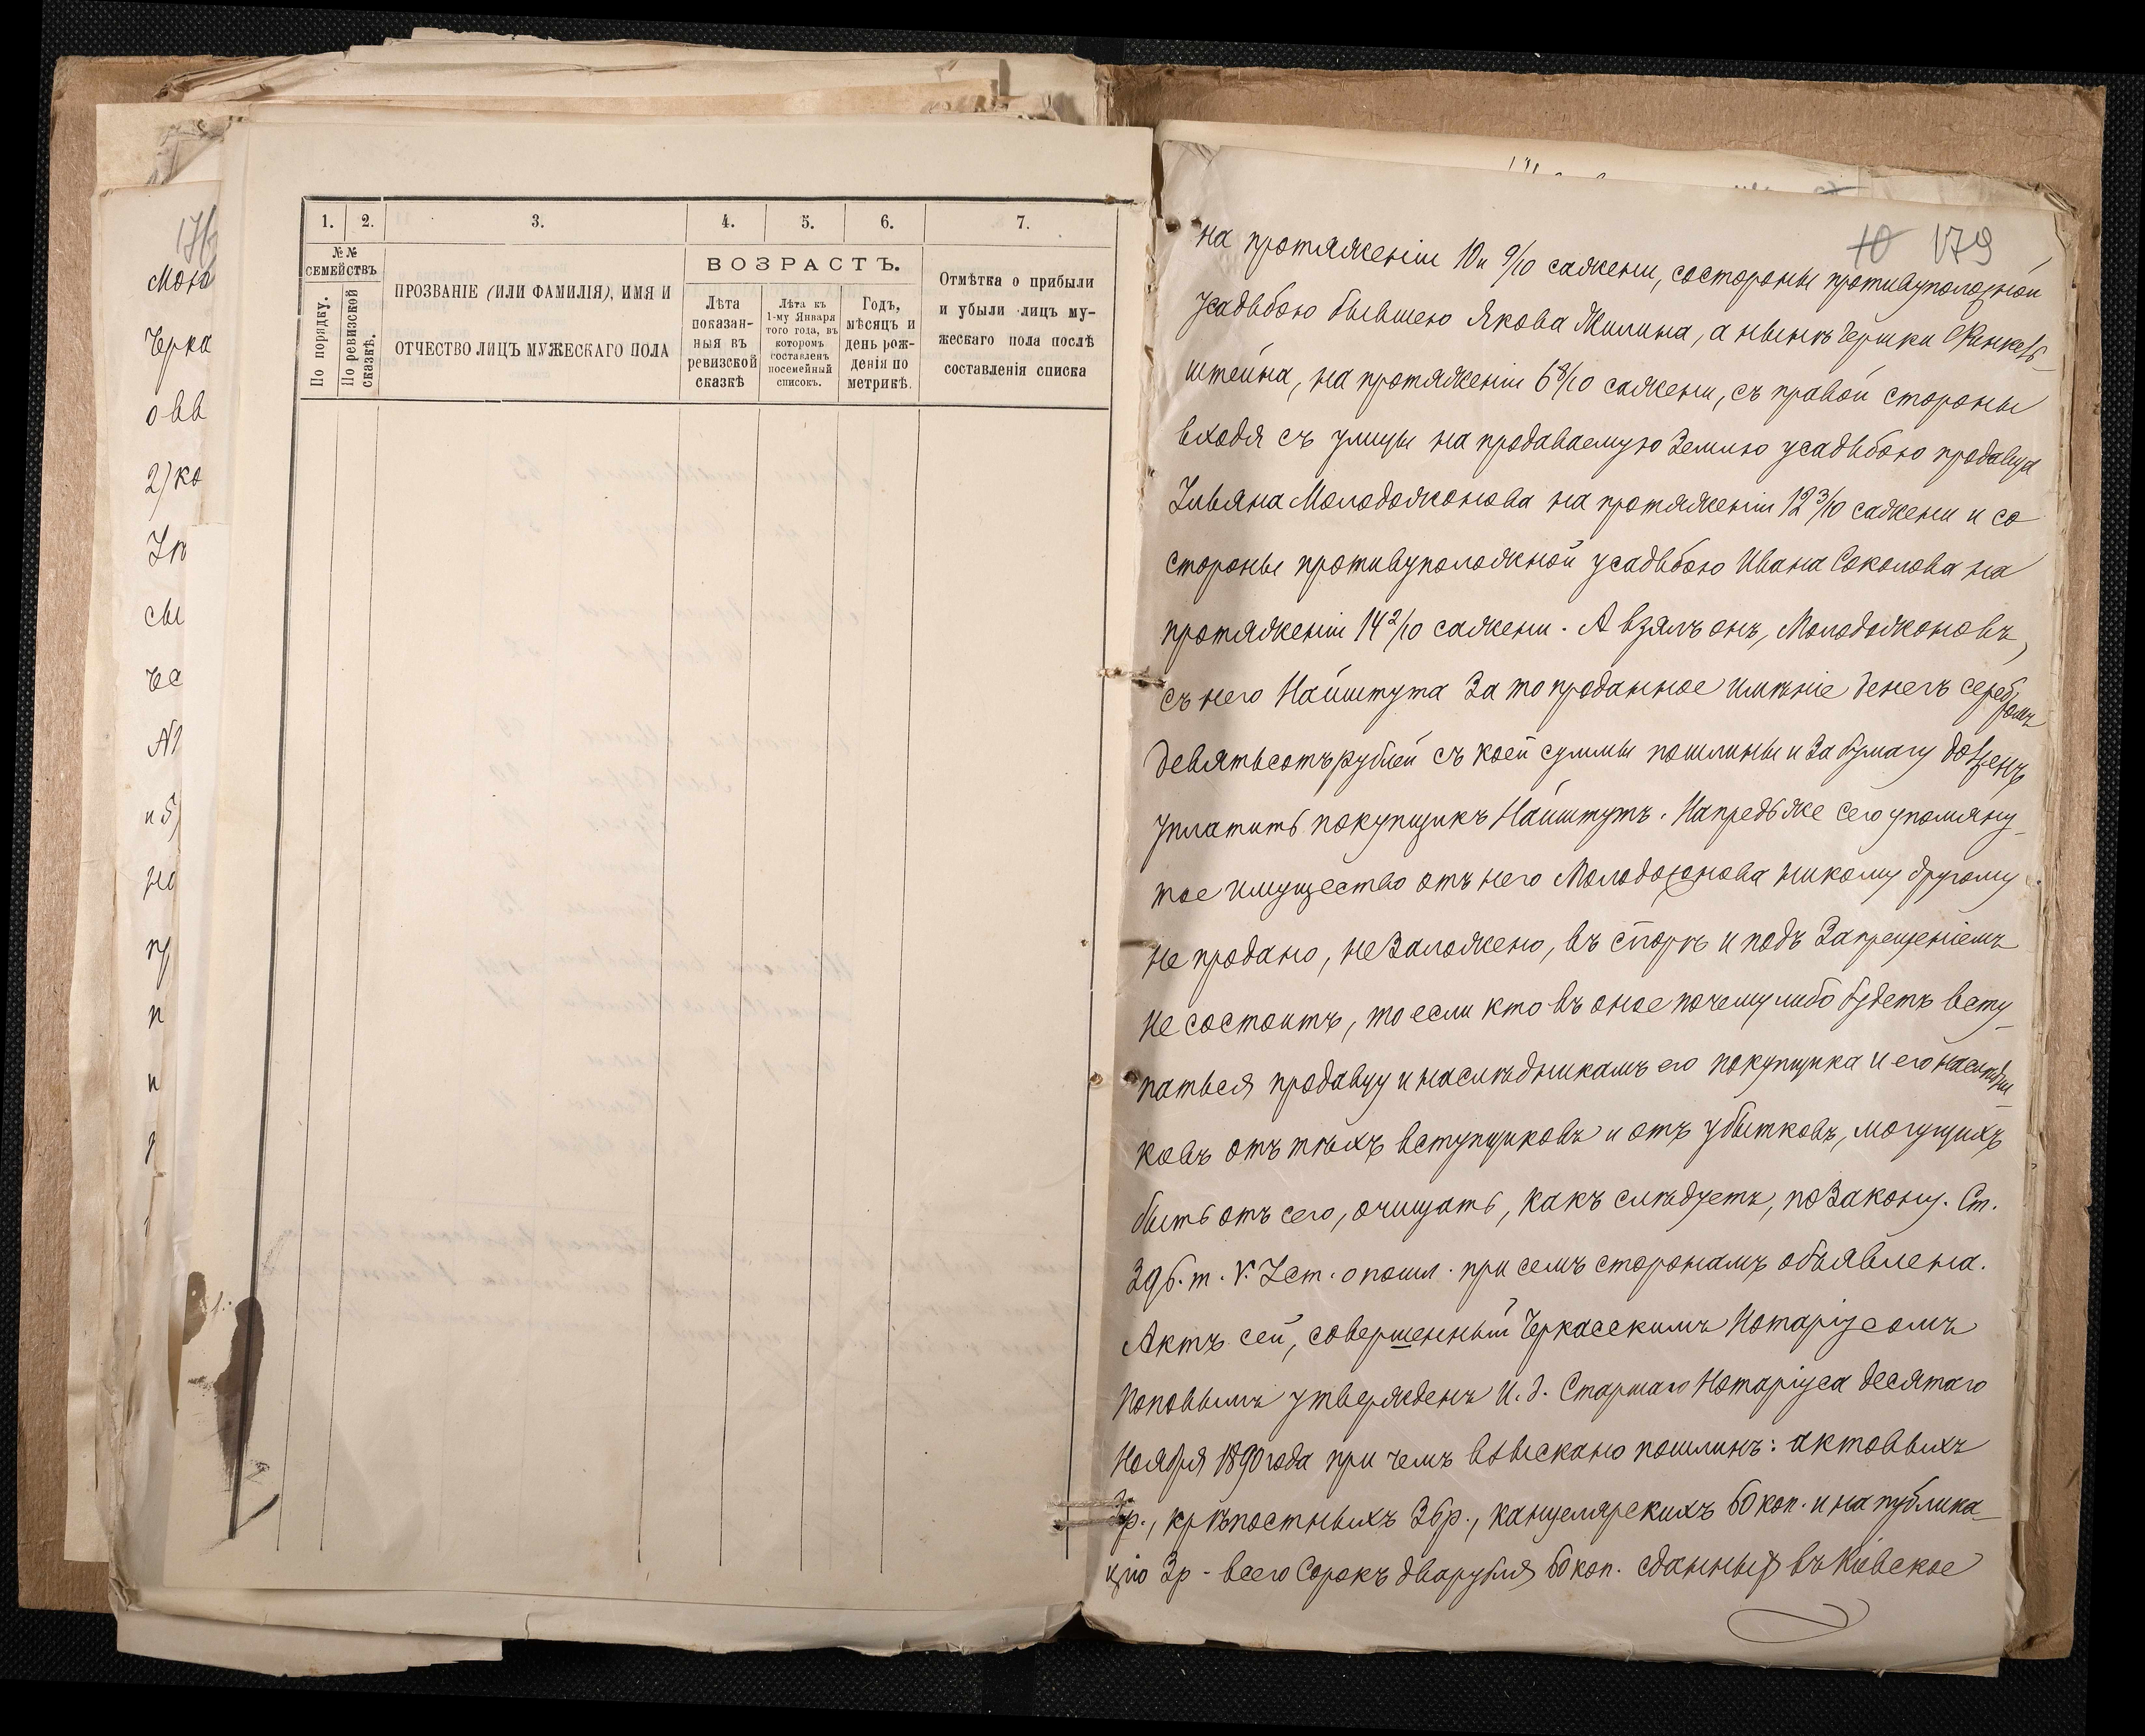 176
Мою
Черка
овв
2) ко
Ут
сы
че
и б
но
пу
п
и
1. 2. 3. 4. 5. 6. 7.
№№ СЕМЕЙСТВЪ
По порядку.
По ревизской сказкѣ.
ПРОЗВАНІЕ (ИЛИ ФАМИЛІЯ), ИМЯ И
ОТЧЕСТВО ЛИЦЪ МУЖЕСКАГО ПОЛА
ВОЗРАСТЪ.
Лѣта
показан-
ныя въ
ревизской
сказкѣ
Лѣта къ
1-му Января
того года, въ
которомъ
составленъ
посемейный
списокъ.
Годъ,
мѣсяцъ и
день рож-
денія по
метрикѣ.
Отмѣтка о прибыли
и убыли лицъ му-
жескаго пола послѣ
составленія списка
10 179
на протяженіи 10 и 9/10 сажени, со стороны противуположной
усадьбою бывшею Якова Жилина, а нынѣ Гершки Финкель-
штейна, на протяженіи 6 8/10 сажени, съ правой стороны
входя съ улицы на продаваемую землю усадьбою продавца
Ульяна Молодожонова на протяженіи 12 3/10 сажени и со
стороны противуположной усадьбою Ивана Соколова на
протяженіи 14 2/10 сажени. А взялъ онъ, Молодожоновъ,
съ него Найштута за то проданное имѣніе денегъ серебромъ
девятьсотъ рублей съ коей суммы пошлины и за бумагу долженъ
уплатить покупщикъ Найштутъ. Напредь же сего упомяну-
тое имущество отъ него Молодожонова никому другому
не продано, не заложено, въ спорѣ и подъ запрещеніемъ
не состоитъ, то если кто въ оное почему либо будетъ всту-
паться продавцу и наслѣдникамъ его покупщика и его наслѣдни-
ковъ отъ тѣхъ вступщиковъ и отъ убытковъ, могущихъ
быть отъ сего, очищать, какъ слѣдуетъ, по закону. Ст.
396. т. V. Уст. о пошл. при семъ сторонамъ объявлена.
Актъ сей, совершенный Черкасскимъ Нотаріусомъ
Поповымъ утвержденъ И. д. Старшаго Нотаріуса десятаго
Ноября 1890 года при чемъ взыскано пошлинъ: актовыхъ
3р., крѣпостныхъ 36р., канцелярскихъ 60 коп. и на публика-
цію 3р - всего сорокъ два рубля 60 коп. сданныя въ Кіевское